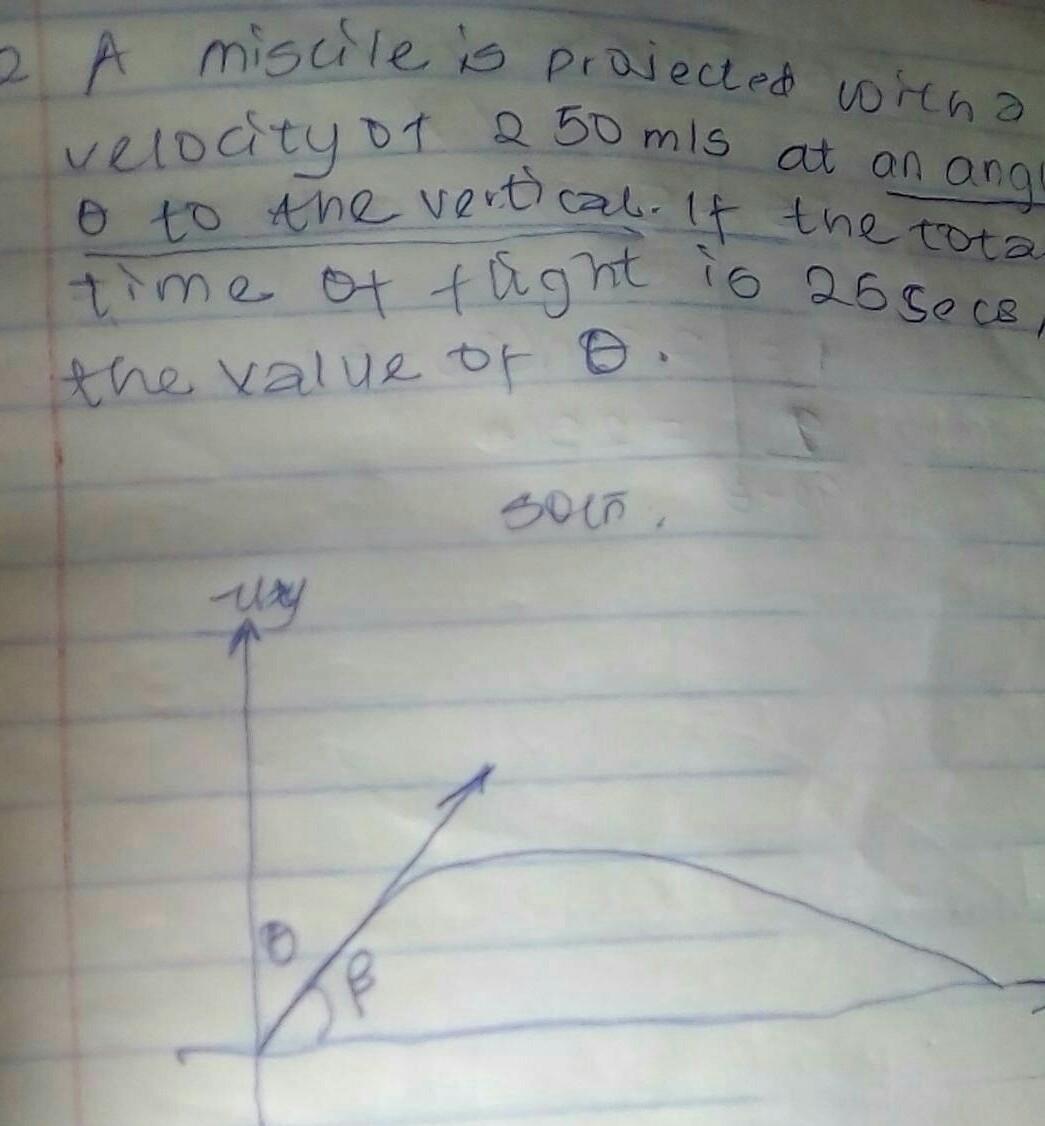 2 A miscile is projected with a
velocity of 250 m/s at an angl
θ to the vertical. If the tota
time of flight is 25 secs,
the value of θ.
soln.
uxy
θ
β